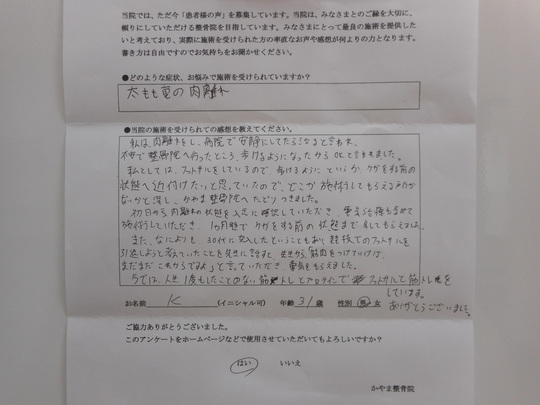 当院では、ただ今「患者様の声」を募集しています。当院は、みなさまとのご縁を大切に、
頼りにしていただける整骨院を目指しています。みなさまにとって最良の施術を提供した
いと考えており、実際に施術を受けられた方の率直なお声や感想が何よりの力となります。
書き方は自由ですのでお気持ちをお聞かせください。
●どのような症状、お悩みで施術を受けられていますか？
太もも裏の肉離れ
●当院の施術を受けられての感想を教えてください。
私は、肉離れをし、病院で安静にしてたら治ると言われ、
整骨院へ行ったところ、歩けるようになったからOKと言われました。
私としては、フットサルをしているので、歩けるようにというか、ケガをする前の
状態へ近付けたいと思っていたので、どこか施術してもらえるところが
ないかと探し、かやま整骨院へたどりつきました。
初日から肉離れの状態を入念に確認していただき、電気治療も含めて
施術していただき、1ヶ月程でケガをする前の状態まで
また、なによりも、30代に突入したということもあり、競技でのフットサルを
引退しようと考えていたことを先生に話すと、先生から筋肉をつけていけば、
まだまだこれからですよ」と言っていただき、勇気をもらえました。
今では、人生1度もしたことのない筋トレとプロテインでフットサルと筋トレを
しています。
ありがとうございました。
お名前 K (イニシャル可) 年齢 31 歳 性別 男・女
ご協力ありがとうございました。
このアンケートをホームページなどで使用させていただいてもよろしいですか？
はい いいえ
かやま整骨院